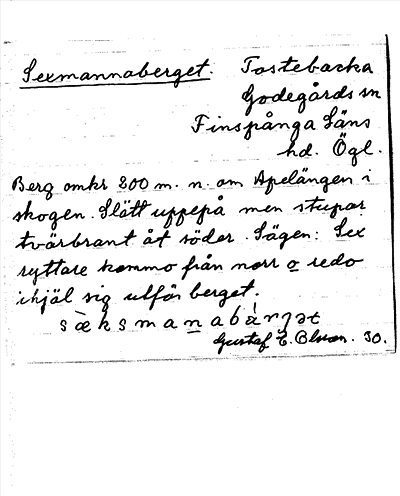 Sexmannaberget. Tostebacka
Godegårds sn
Finspånga Läns
hd. Ögl.
Berg omkr 200 m. n. om Apelängen i
skogen. Slätt uppepå men stupar
tvärbrant åt söder. Sägen: Sex
ryttare kommo från norr o redo
ihjäl sig utför berget.
sæksmanabàrɳət
Gustaf E. Olsson. 30.